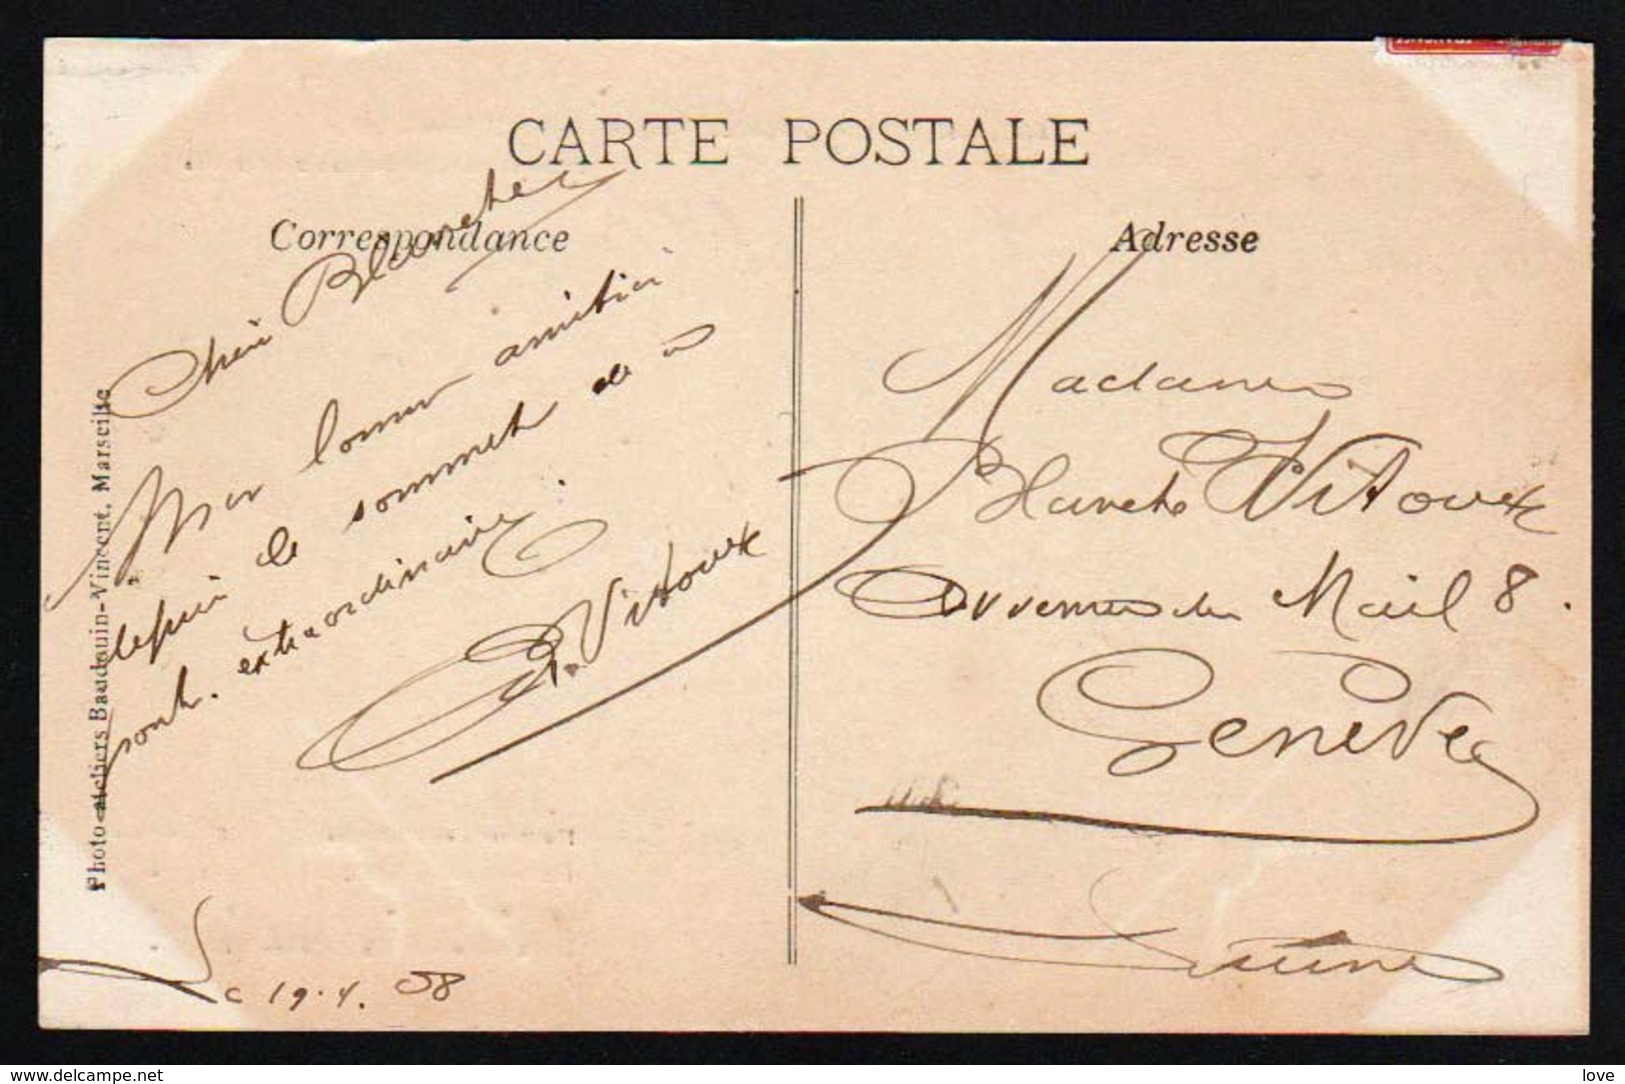 CARTE POSTALE
Correspondance
Adresse
Chère Blanche
Mon bonne amitié
depuis le sommet de
pont. extraordinaire.
Vitoux
Le 19.4.08
Photo-ateliers Baudouin-Vincent, Marseille
Madame
Blanche Vitoux
Avenue du Mail 8.
Genève
Suisse
delcampe.net
love